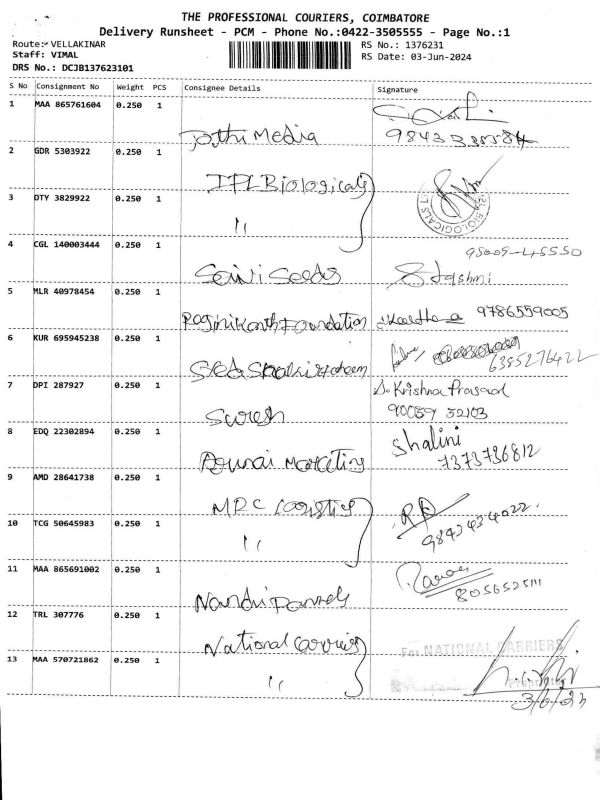 THE PROFESSIONAL COURIERS, COIMBATORE
Delivery Runsheet - PCM - Phone No.:0422-3505555 - Page No.:1
Route: VELLAKINAR
RS No.: 1376231
Staff: VIMAL
RS Date: 03-Jun-2024
DRS No.: DCJB137623101
S No Consignment No Weight PCS Consignee Details Signature
1 MAA 865761604 0.250 1
Jothi Media
2 GDR 5303922 0.250 1
IPL Biologicals
3 DTY 3829922 0.250 1
"
BIOLOGICALS
4 CGL 140003444 0.250 1
98009-45550
Saini Seeds
5 MLR 40978454 0.250 1
Foundation 9786559005
6 KUR 695945238 0.250 1
6385276422
7 DPI 287927 0.250 1
S. Krishna Prasad
Suresh 90039 32103
8 EDQ 22302894 0.250 1
Shalini
Marketing 7373736812
9 AMD 28641738 0.250 1
MDC Logistics
10 TCG 50645983 0.250 1
" 9843434022
11 MAA 865691002 0.250 1
8056525111
Nandri Pannels
12 TRL 307776 0.250 1
National Carriers
For NATIONAL CARRIERS
13 MAA 570721862 0.250 1
"